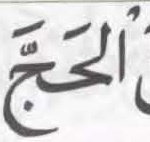 الحَجَّ